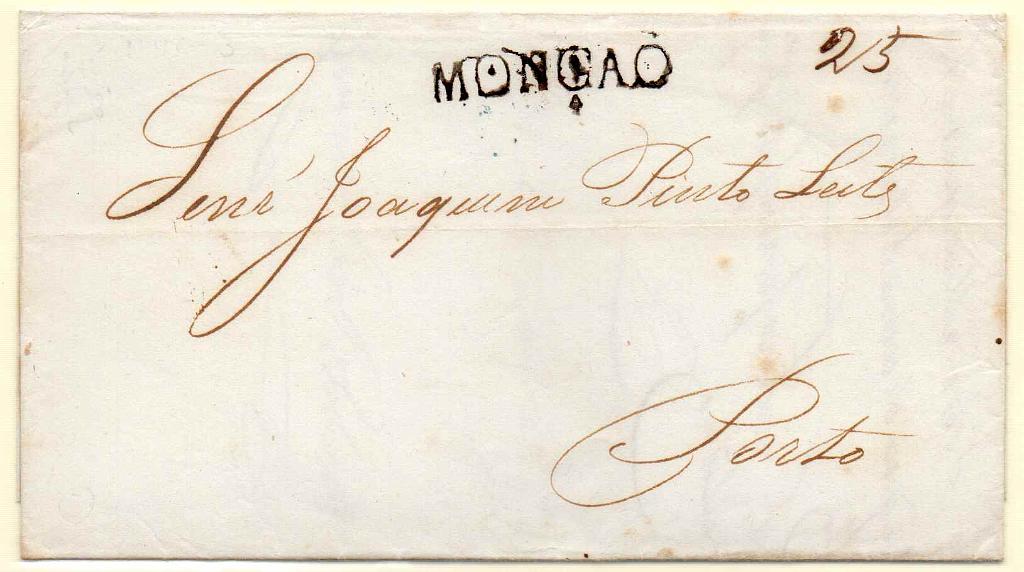 MONÇAO
25
Senr Joaquim Pinto Leite
Porto